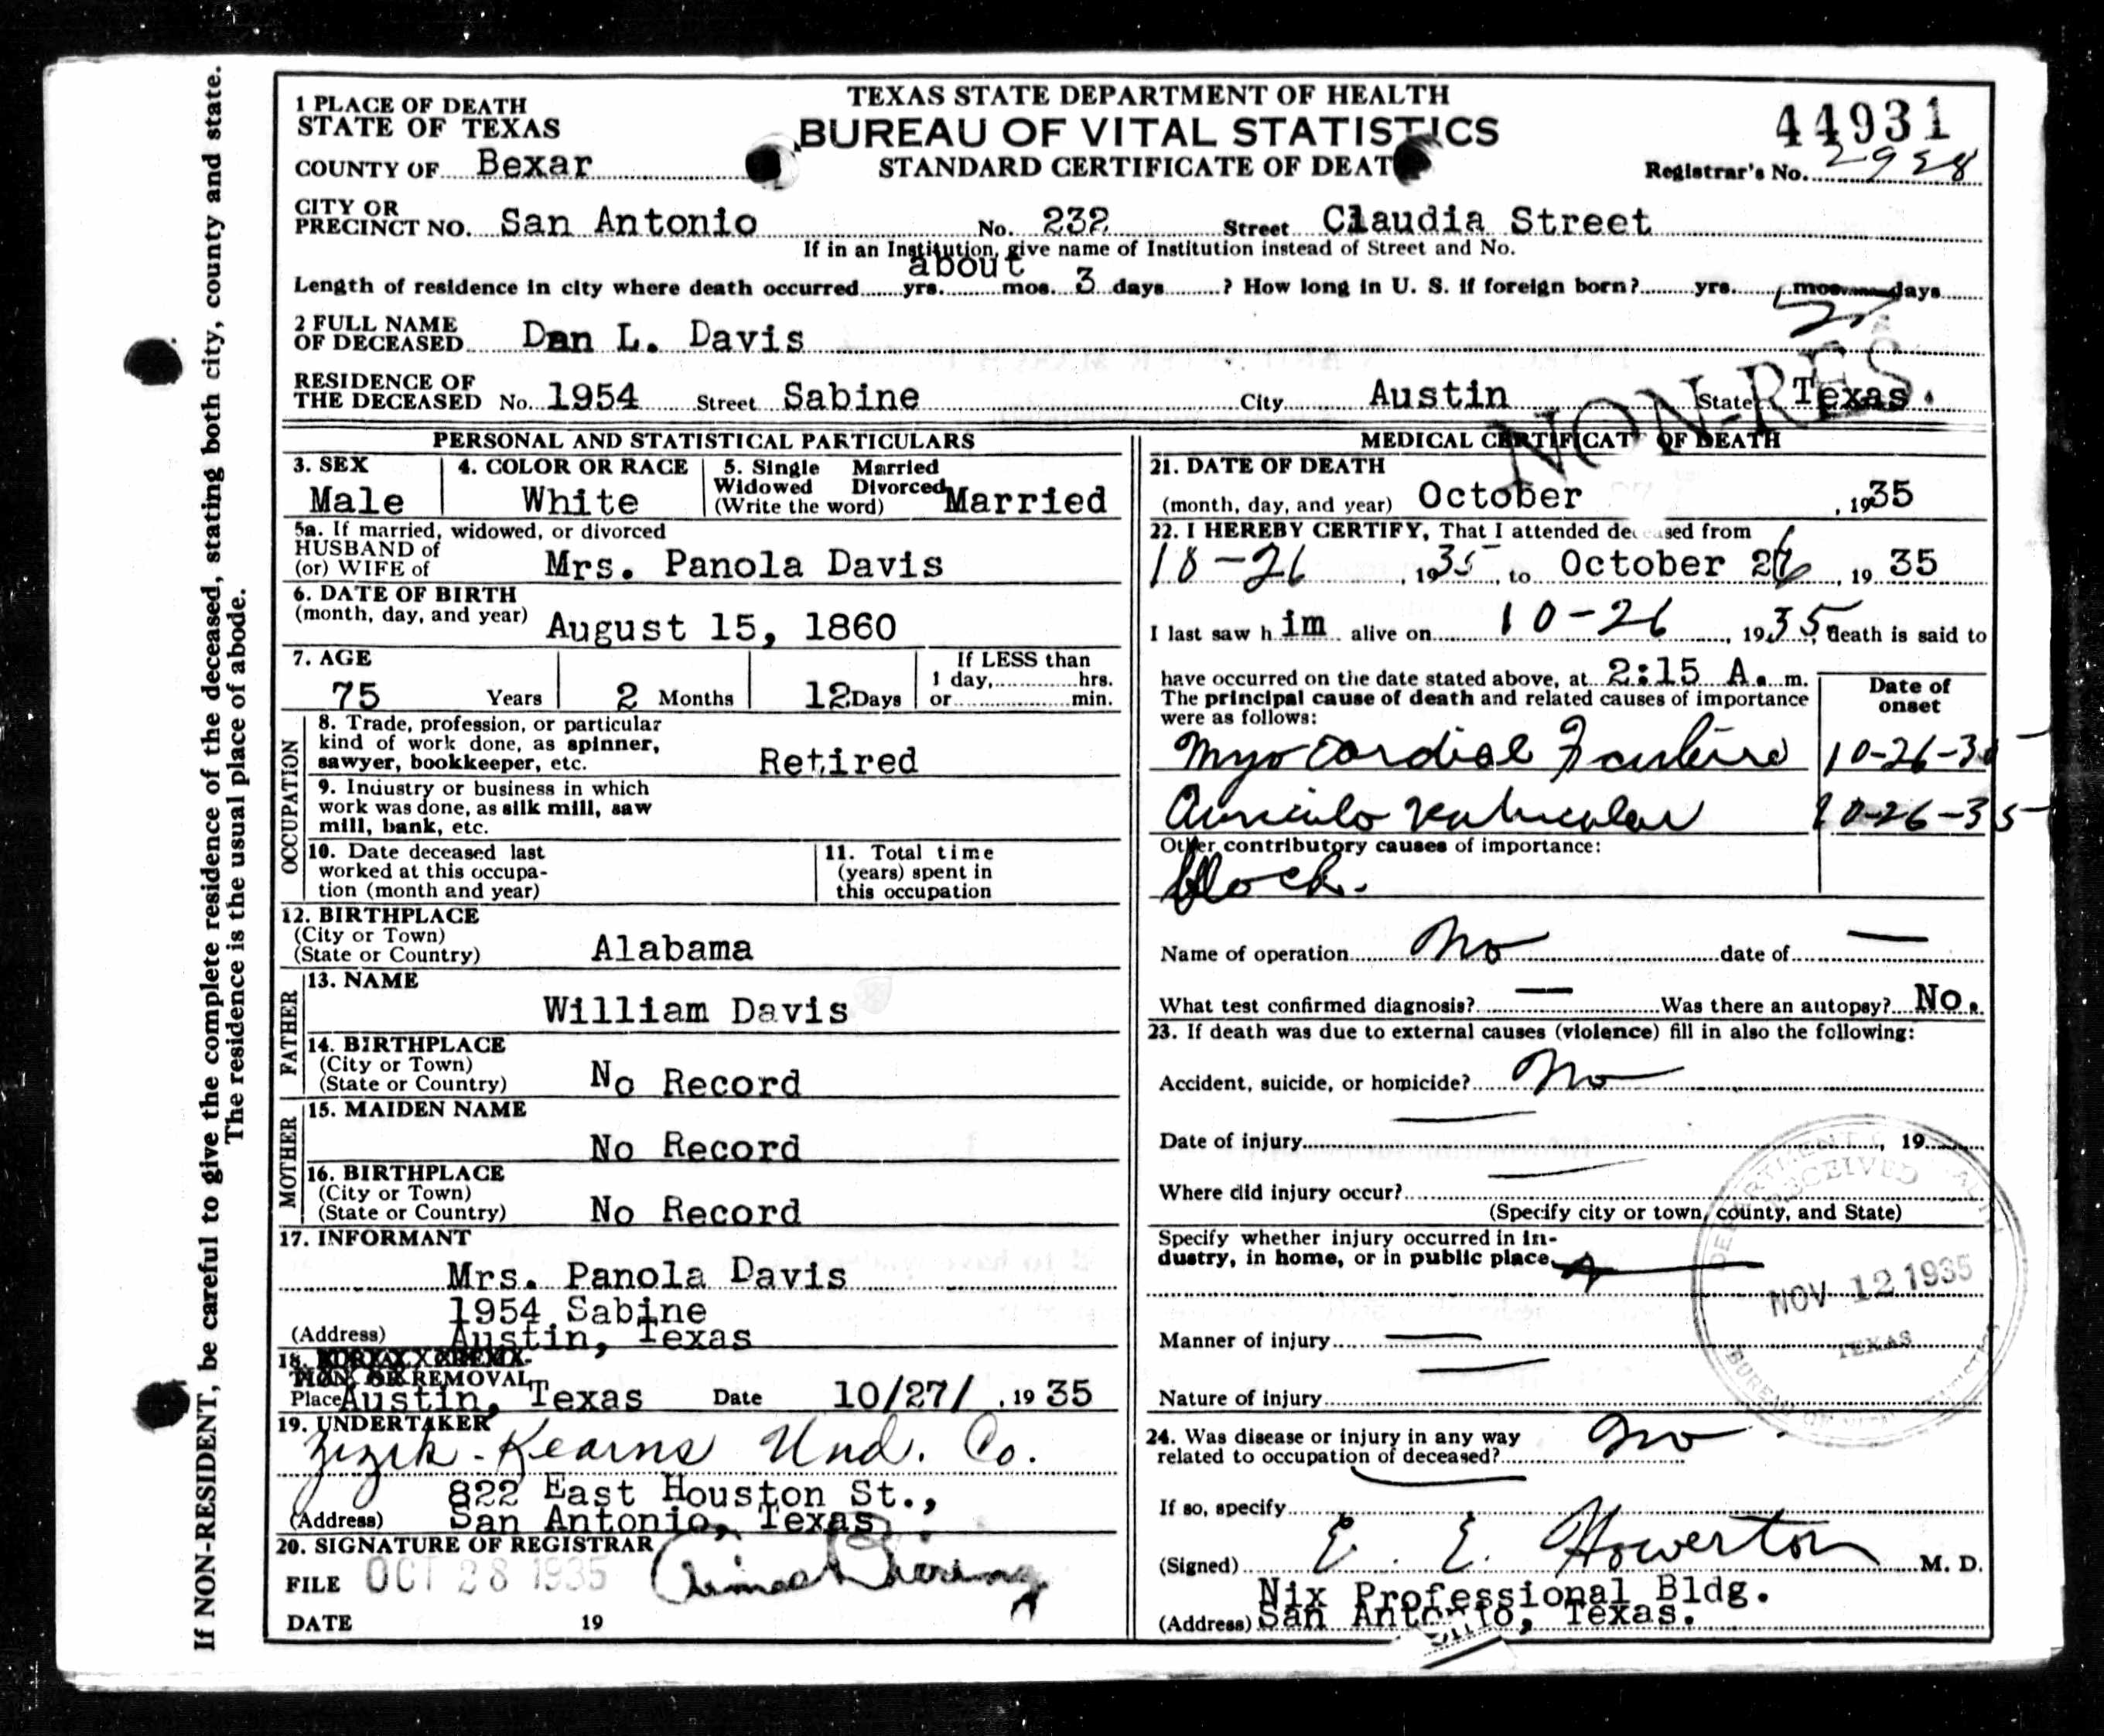 If NON-RESIDENT, be careful to give the complete residence of the deceased, stating both city, county and state.
The residence is the usual place of abode.
TEXAS STATE DEPARTMENT OF HEALTH
BUREAU OF VITAL STATISTICS
STANDARD CERTIFICATE OF DEAT
44931
Registrar's No. 2928
1 PLACE OF DEATH
STATE OF TEXAS
COUNTY OF Bexar
CITY OR
PRECINCT NO. San Antonio No. 232 Street Claudia Street
If in an Institution, give name of Institution instead of Street and No.
about
Length of residence in city where death occurred yrs. mos. 3 days ? How long in U. S. if foreign born? yrs. mos. days
2 FULL NAME
OF DECEASED Dan L. Davis
RESIDENCE OF
THE DECEASED No. 1954 Street Sabine City Austin State Texas.
NON-RES
PERSONAL AND STATISTICAL PARTICULARS
3. SEX
Male
4. COLOR OR RACE
White
5. Single Married
Widowed Divorced
(Write the word) Married
5a. If married, widowed, or divorced
HUSBAND of
(or) WIFE of Mrs. Panola Davis
6. DATE OF BIRTH
(month, day, and year) August 15, 1860
7. AGE
75 Years 2 Months 12 Days
If LESS than
1 day, hrs.
or min.
OCCUPATION
8. Trade, profession, or particular
kind of work done, as spinner,
sawyer, bookkeeper, etc. Retired
9. Industry or business in which
work was done, as silk mill, saw
mill, bank, etc.
10. Date deceased last
worked at this occupa-
tion (month and year)
11. Total time
(years) spent in
this occupation
12. BIRTHPLACE
(City or Town)
(State or Country) Alabama
FATHER
13. NAME
William Davis
14. BIRTHPLACE
(City or Town)
(State or Country) No Record
MOTHER
15. MAIDEN NAME
No Record
16. BIRTHPLACE
(City or Town)
(State or Country) No Record
17. INFORMANT
Mrs. Panola Davis
1954 Sabine
(Address) Austin, Texas
18.
OR REMOVAL
Place Austin, Texas Date 10/27/ , 19 35
19. UNDERTAKER
Zizik-Kearns Und. Co.
822 East Houston St.,
(Address) San Antonio, Texas
20. SIGNATURE OF REGISTRAR
FILE OCT 28 1935
DATE 19
MEDICAL CERTIFICAT OF DEATH
21. DATE OF DEATH
(month, day, and year) October , 1935
22. I HEREBY CERTIFY, That I attended deceased from
10-26 , 1935, to October 26 , 19 35
I last saw h im alive on 10-26 , 1935, death is said to
have occurred on the date stated above, at 2:15 A. m.
The principal cause of death and related causes of importance
were as follows:
Date of
onset
Myocardial Failure 10-26-35
Auriculo ventricular 10-26-35
Other contributory causes of importance:
block.
Name of operation no date of —
What test confirmed diagnosis? — Was there an autopsy? No.
23. If death was due to external causes (violence) fill in also the following:
Accident, suicide, or homicide? no
Date of injury , 19
Where did injury occur?
(Specify city or town, county, and State)
Specify whether injury occurred in in-
dustry, in home, or in public place.
Manner of injury —
Nature of injury
RECEIVED
NOV 12 1935
TEXAS
24. Was disease or injury in any way
related to occupation of deceased? no
If so, specify
(Signed) E. E. Howerton M. D.
Nix Professional Bldg.
(Address) San Antonio, Texas.